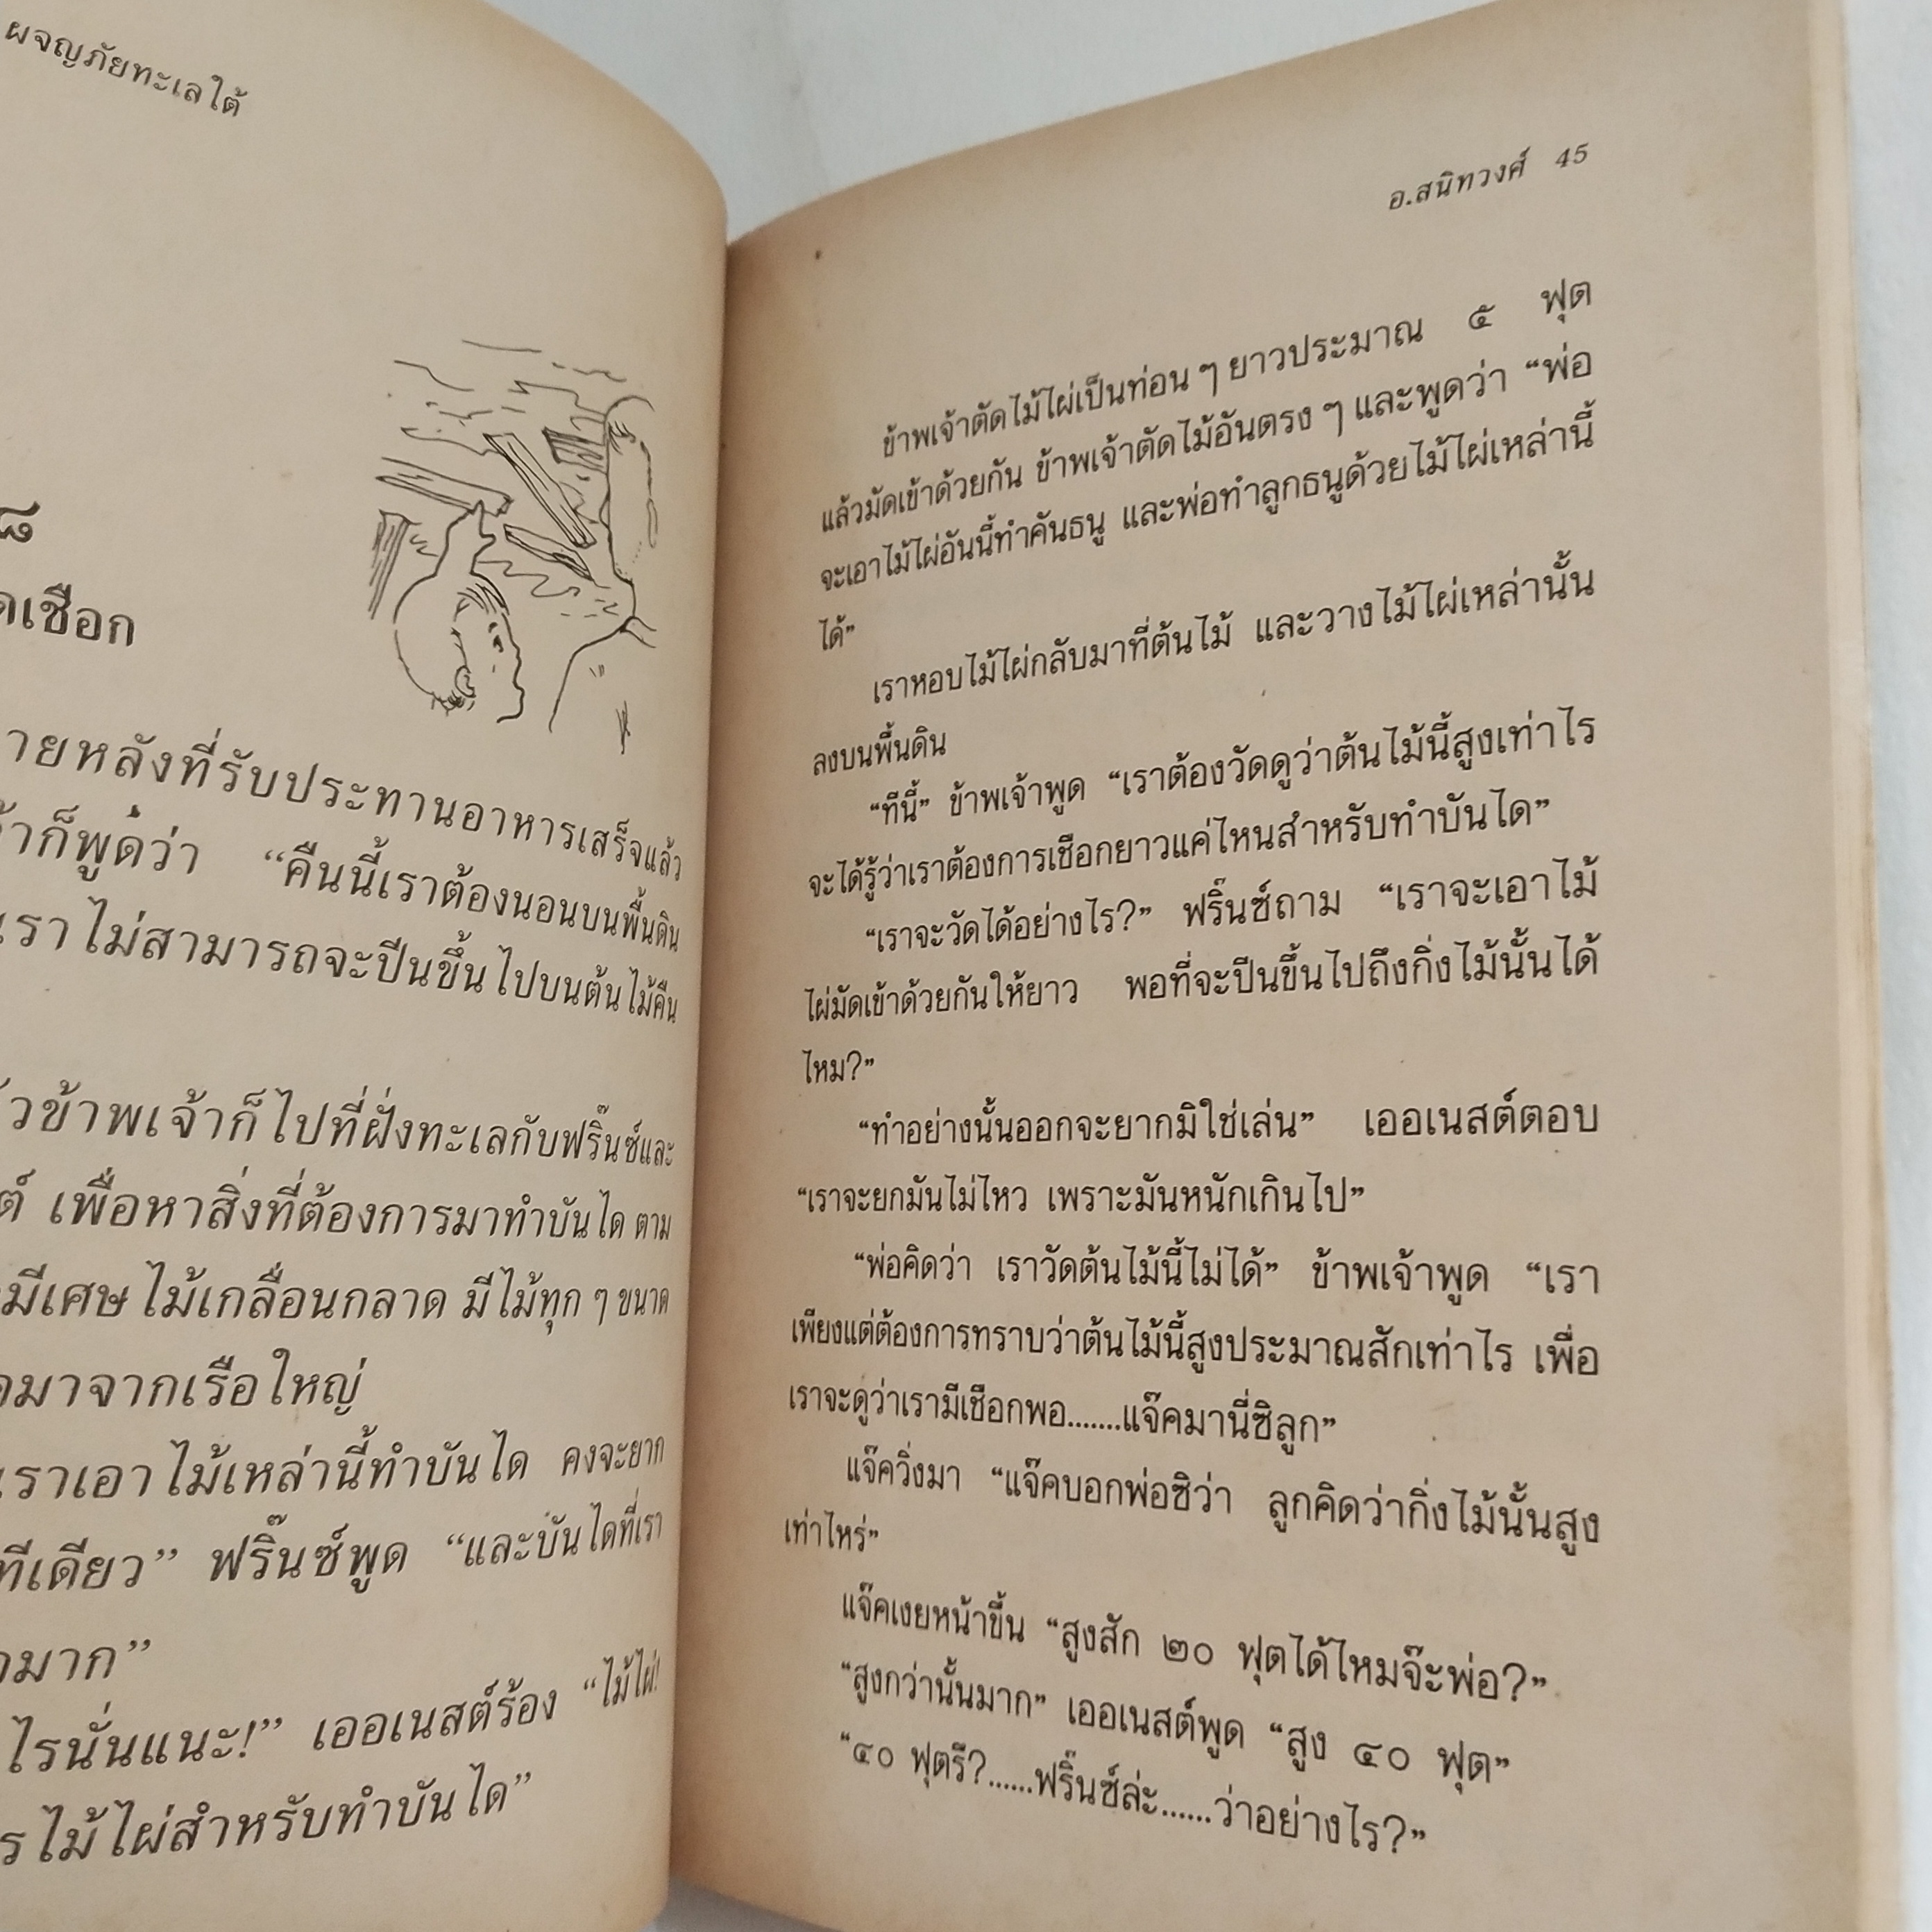 ผจญภัยทะเลใต้
๘
เชือก
ายหลังที่รับประทานอาหารเสร็จแล้ว
ก็พูดว่า “คืนนี้เราต้องนอนบนพื้นดิน
เราไม่สามารถจะปีนขึ้นไปบนต้นไม้คืน
ข้าพเจ้าก็ไปที่ฝั่งทะเลกับฟริ๊นซ์และ
เพื่อหาสิ่งที่ต้องการมาทำบันได ตาม
มีเศษไม้เกลื่อนกลาด มีไม้ทุก ๆ ขนาด
มาจากเรือใหญ่
เราเอาไม้เหล่านี้ทำบันได คงจะยาก
ทีเดียว” ฟริ๊นซ์พูด “และบันไดที่เรา
มาก”
ไรนั่นแนะ!” เออเนสต์ร้อง “ไม้ไผ่!
ไม้ไผ่สำหรับทำบันได”
อ.สนิทวงศ์ 45
ข้าพเจ้าตัดไม้ไผ่เป็นท่อน ๆ ยาวประมาณ ๕ ฟุต
แล้วมัดเข้าด้วยกัน ข้าพเจ้าตัดไม้อันตรง ๆ และพูดว่า “พ่อ
จะเอาไม้ไผ่อันนี้ทำคันธนู และพ่อทำลูกธนูด้วยไม้ไผ่เหล่านี้
ได้”
เราหอบไม้ไผ่กลับมาที่ต้นไม้ และวางไม้ไผ่เหล่านั้น
ลงบนพื้นดิน
“ทีนี้” ข้าพเจ้าพูด “เราต้องวัดดูว่าต้นไม้นี้สูงเท่าไร
จะได้รู้ว่าเราต้องการเชือกยาวแค่ไหนสำหรับทำบันได”
“เราจะวัดได้อย่างไร?” ฟริ๊นซ์ถาม “เราจะเอาไม้
ไผ่มัดเข้าด้วยกันให้ยาว พอที่จะปีนขึ้นไปถึงกิ่งไม้นั้นได้
ไหม?”
“ทำอย่างนั้นออกจะยากมิใช่เล่น” เออเนสต์ตอบ
“เราจะยกมันไม่ไหว เพราะมันหนักเกินไป”
“พ่อคิดว่า เราวัดต้นไม้นี้ไม่ได้” ข้าพเจ้าพูด “เรา
เพียงแต่ต้องการทราบว่าต้นไม้นี้สูงประมาณสักเท่าไร เพื่อ
เราจะดูว่าเรามีเชือกพอ.......แจ๊คมานี่ซิลูก”
แจ๊ควิ่งมา “แจ๊คบอกพ่อซิว่า ลูกคิดว่ากิ่งไม้นั้นสูง
เท่าไหร่”
แจ๊คเงยหน้าขึ้น “สูงสัก ๒๐ ฟุตได้ไหมจ๊ะพ่อ?”
“สูงกว่านั้นมาก” เออเนสต์พูด “สูง ๔๐ ฟุต”
“๔๐ ฟุตรึ?......ฟริ๊นซ์ล่ะ......ว่าอย่างไร?”